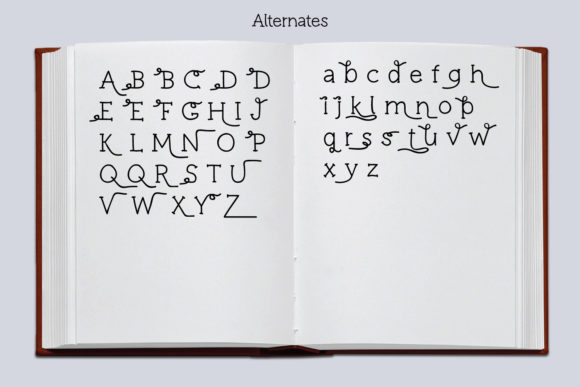 Alternates
A B B C D D
E E F G H I J
K L M N O P
Q Q R S T U
V W X Y Z
a b c d e f g h
i j k l m n o p
q r s s t u v w
x y z